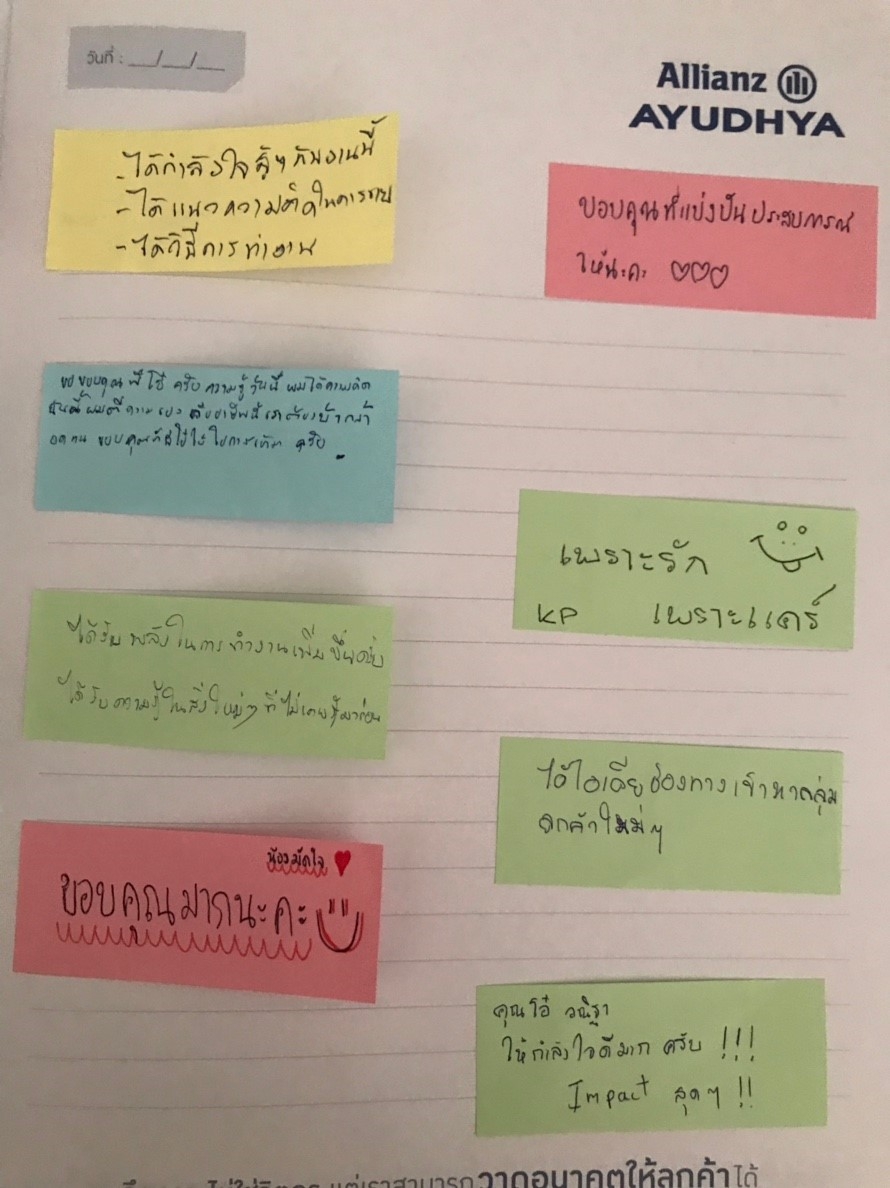 วันที่ : __/__/__
Allianz
AYUDHYA
- ได้กำลังใจสู้ๆ กับงานนี้
- ได้แนวความคิดในการขาย
- ได้วิธีการทำงาน
ขอบคุณที่แบ่งปันประสบการณ์
ให้นะคะ ♡♡♡
ขอขอบคุณพี่โอ๋ ครับ ความรู้วันนี้ ผมได้
อดทน ขอบคุณที่ ครับ
เพราะรัก
KP เพราะแคร์
ได้รับพลังในการทำงานเพิ่มขึ้นครับ
ได้รับความรู้ในสิ่งใหม่ๆ ที่ไม่เคยรู้มาก่อน
ได้ไอเดียช่องทางเข้าหากลุ่ม
ลูกค้าใหม่ๆ
น้องมัดใจ ♥
ขอบคุณมากนะคะ
คุณโอ๋ วณิฐา
ให้กำลังใจดีมาก ครับ !!!
Impact สุดๆ !!
แต่เราสามารถวาดอนาคตให้ลูกค้าได้